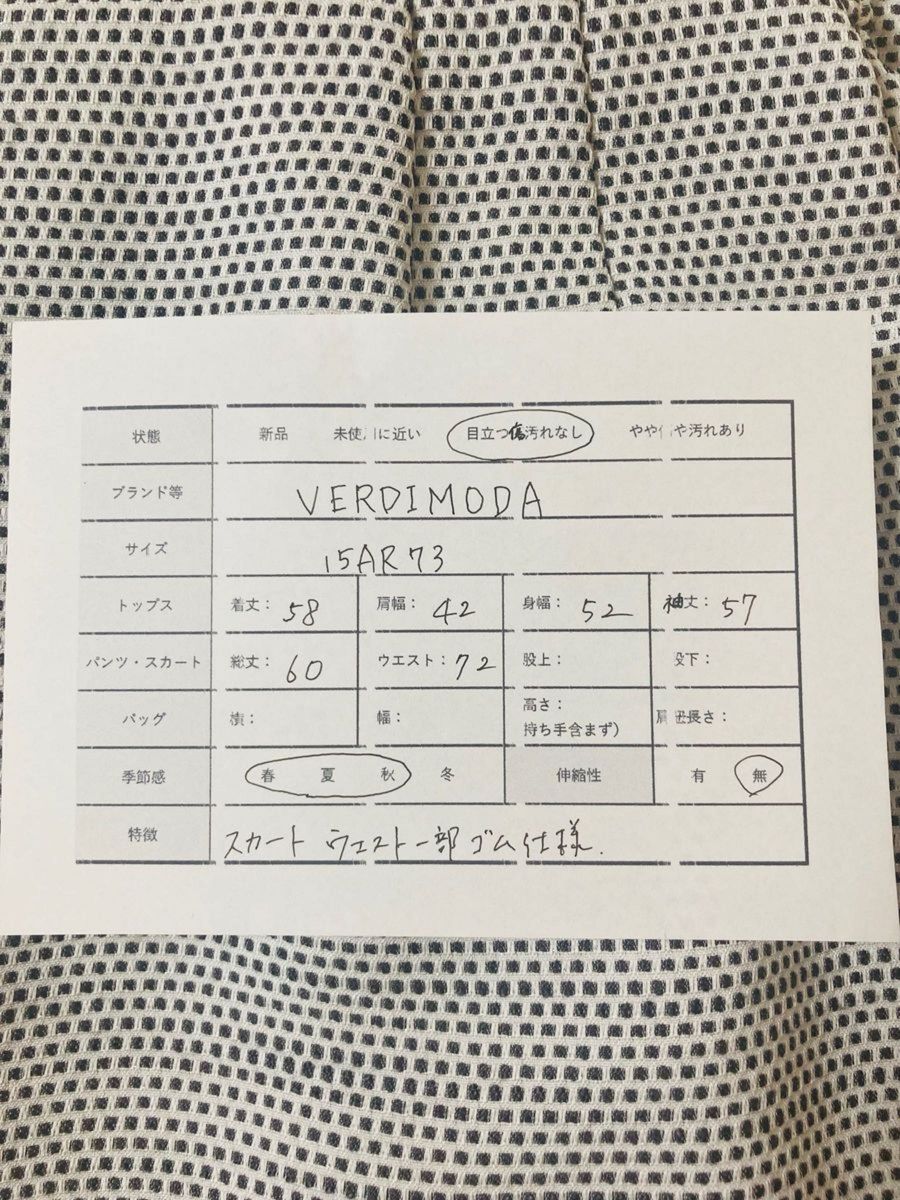 状態 新品 未使用に近い 目立つ傷汚れなし やや傷や汚れあり
ブランド等 VERDIMODA
サイズ 15AR73
トップス 着丈：58 肩幅：42 身幅：52 袖丈：57
パンツ・スカート 総丈：60 ウエスト：72 股上： 股下：
バッグ 横： 幅： 高さ：
持ち手含まず） 長さ：
季節感 春 夏 秋 冬 伸縮性 有 無
特徴 スカート ウエスト一部ゴム仕様.